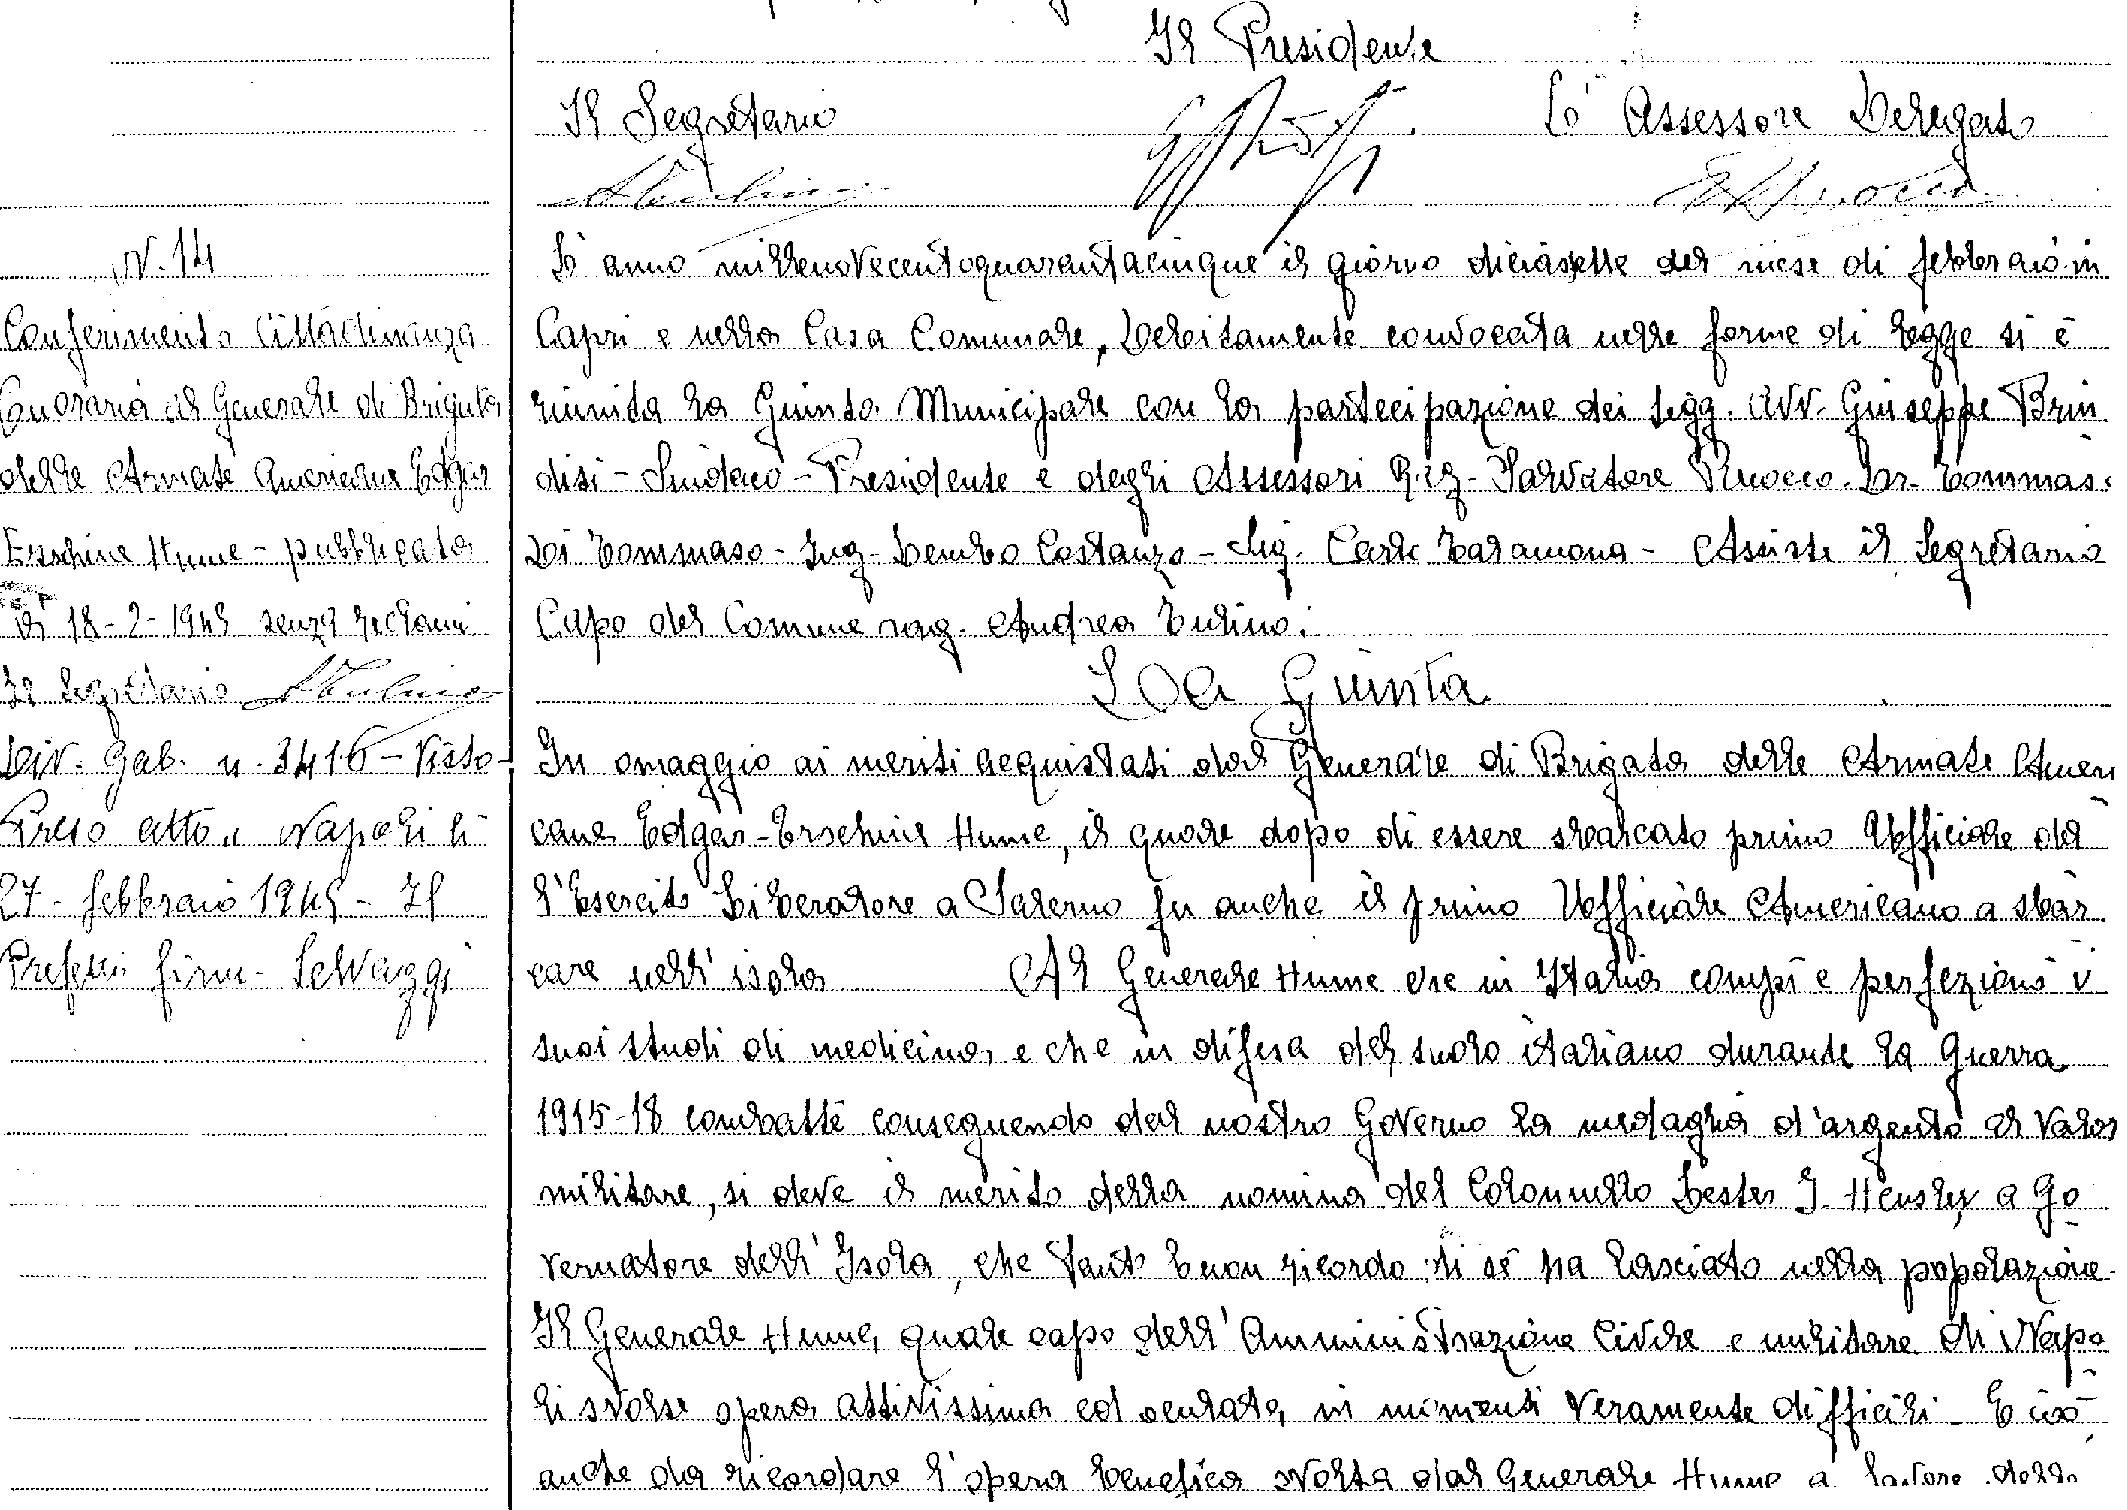 Il Presidente
Il Segretario
L'Assessore Delegato
N. 14
Conferimento Cittadinanza
Onoraria al Generale di Brigata
delle Armate Americane Edgar
Erschine Hume - pubblicata
di 18-2-1945 senza reclami
Il Segretario
Div. Gab. n. 3416 - Visto -
Preso atto. Napoli li
27 - febbraio 1945 - Il
Prefetto firm - Selvaggi
L'anno millenovecentoquarantacinque il giorno diciassette del mese di febbraio in
Capri e nella Casa Comunale, Debitamente convocata nelle forme di legge si è
riunita la Giunta Municipale con la partecipazione dei Sigg. Avv. Giuseppe Brin
disi - Sindaco - Presidente e degli Assessori Rag - Salvatore Ruocco - Dr. Tommaso
Di Tommaso - Ing - Lembo Costanzo - Sig. Carlo Talamona - Assiste il Segretario
Capo del Comune rag. Andrea Turino:
La Giunta
In omaggio ai meriti acquistati dal Generale di Brigata delle Armate Ameri
cane Edgar-Erschine Hume, il quale dopo di essere sbarcato primo Ufficiale del
l'Esercito Liberatore a Salerno fu anche il primo Ufficiale Americano a sbar
care nell'isola Al Generale Hume che in Italia compì e perfezionò i
suoi studi di medicina, e che in difesa del suolo italiano durante la Guerra
1915-18 combattè conseguendo dal nostro Governo la medaglia d'argento al Valor
militare, si deve il merito della nomina del Colonnello Lester J. Hensley a Go
vernatore dell'Isola, che tanto buon ricordo di sé ha lasciato nella popolazione.
Il Generale Hume, quale capo dell'Amministrazione Civile e militare di Napo
li svolse opera attivissima ed oculata, in momenti veramente difficili - E ciò
anche da ricordare l'opera benefica svolta dal Generale Hume a favore della